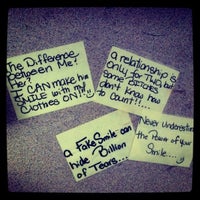 The Difference
Between Me &
Her?
I CAN make him
SMILE with my
Clothes ON!!
a relationship is
Only for TWO but
some BITCHES
don't know how
to Count!!....
a Fake Smile can
hide a Billion
of Tears....
Never Underestimate
the Power of your
Smile....